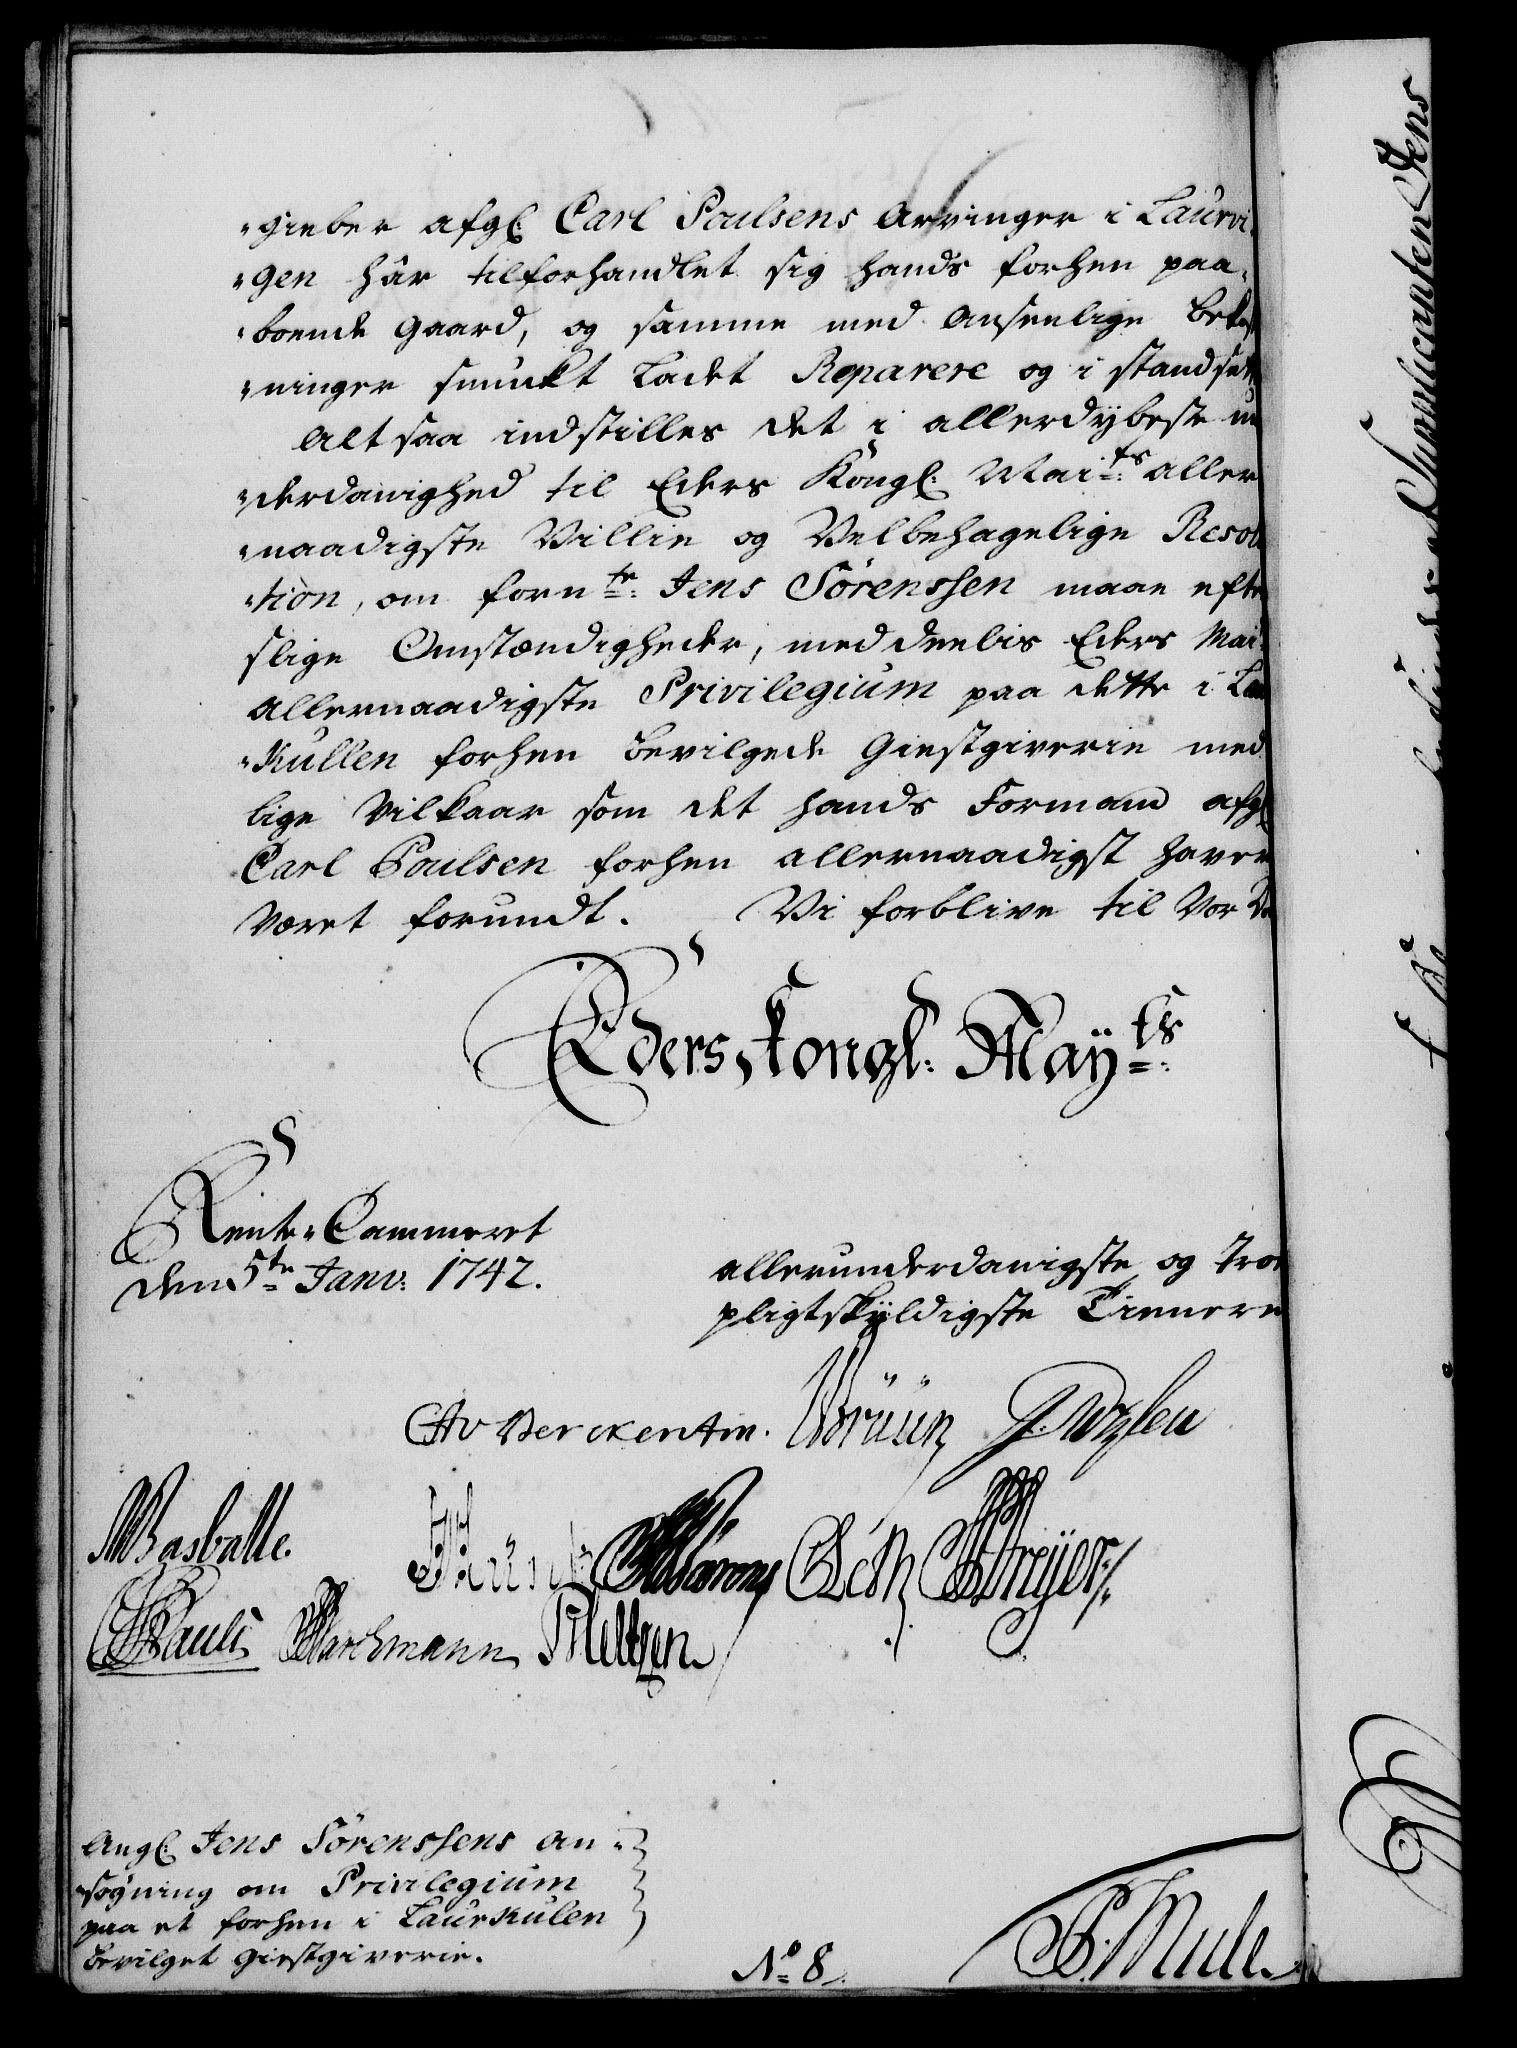 "gieber afgl: Carl Poulsens Arvinger i Laurvi-
"gen hâr tilforhandlet sig hands forhen paa-
"boende Gaard, og samme med Anseelige Bekost
"ninger smukt Ladet Reparere og i stand sætt
Alt saa indstilles det i allerdÿbeste un
"derdanighed til Eders Kongl: Mai:ts aller
"naadigste Villie og Velbehagelige Resolu
"tion, om forn:te Jens Sörenssen maae efter
slige Omstændigheder, meddeelis Eders Mai:
Allernaadigste Privilegium paa dette i Lau
"Kullen forhen bevilgede Giestgiverie med
lige Vilkaar som det hands Formand afgl
Carl Poulsen forhen allernaadigst haver
Været forundt. Vi forblive til Vor Dø
Eders Kongl: Maÿ:ts
Rente-Cammeret
den 5te Janv: 1742.
allerunderdanigste og Troe
pligtskÿldigste Tienere
CAv Berckentin.
Basballe.
CPauli
P. Mule
Angl: Jens Sörenssens an-
søgning om Privilegium
paa et forhen i Laurkulen
bevilget giestgiverie.
No 8.